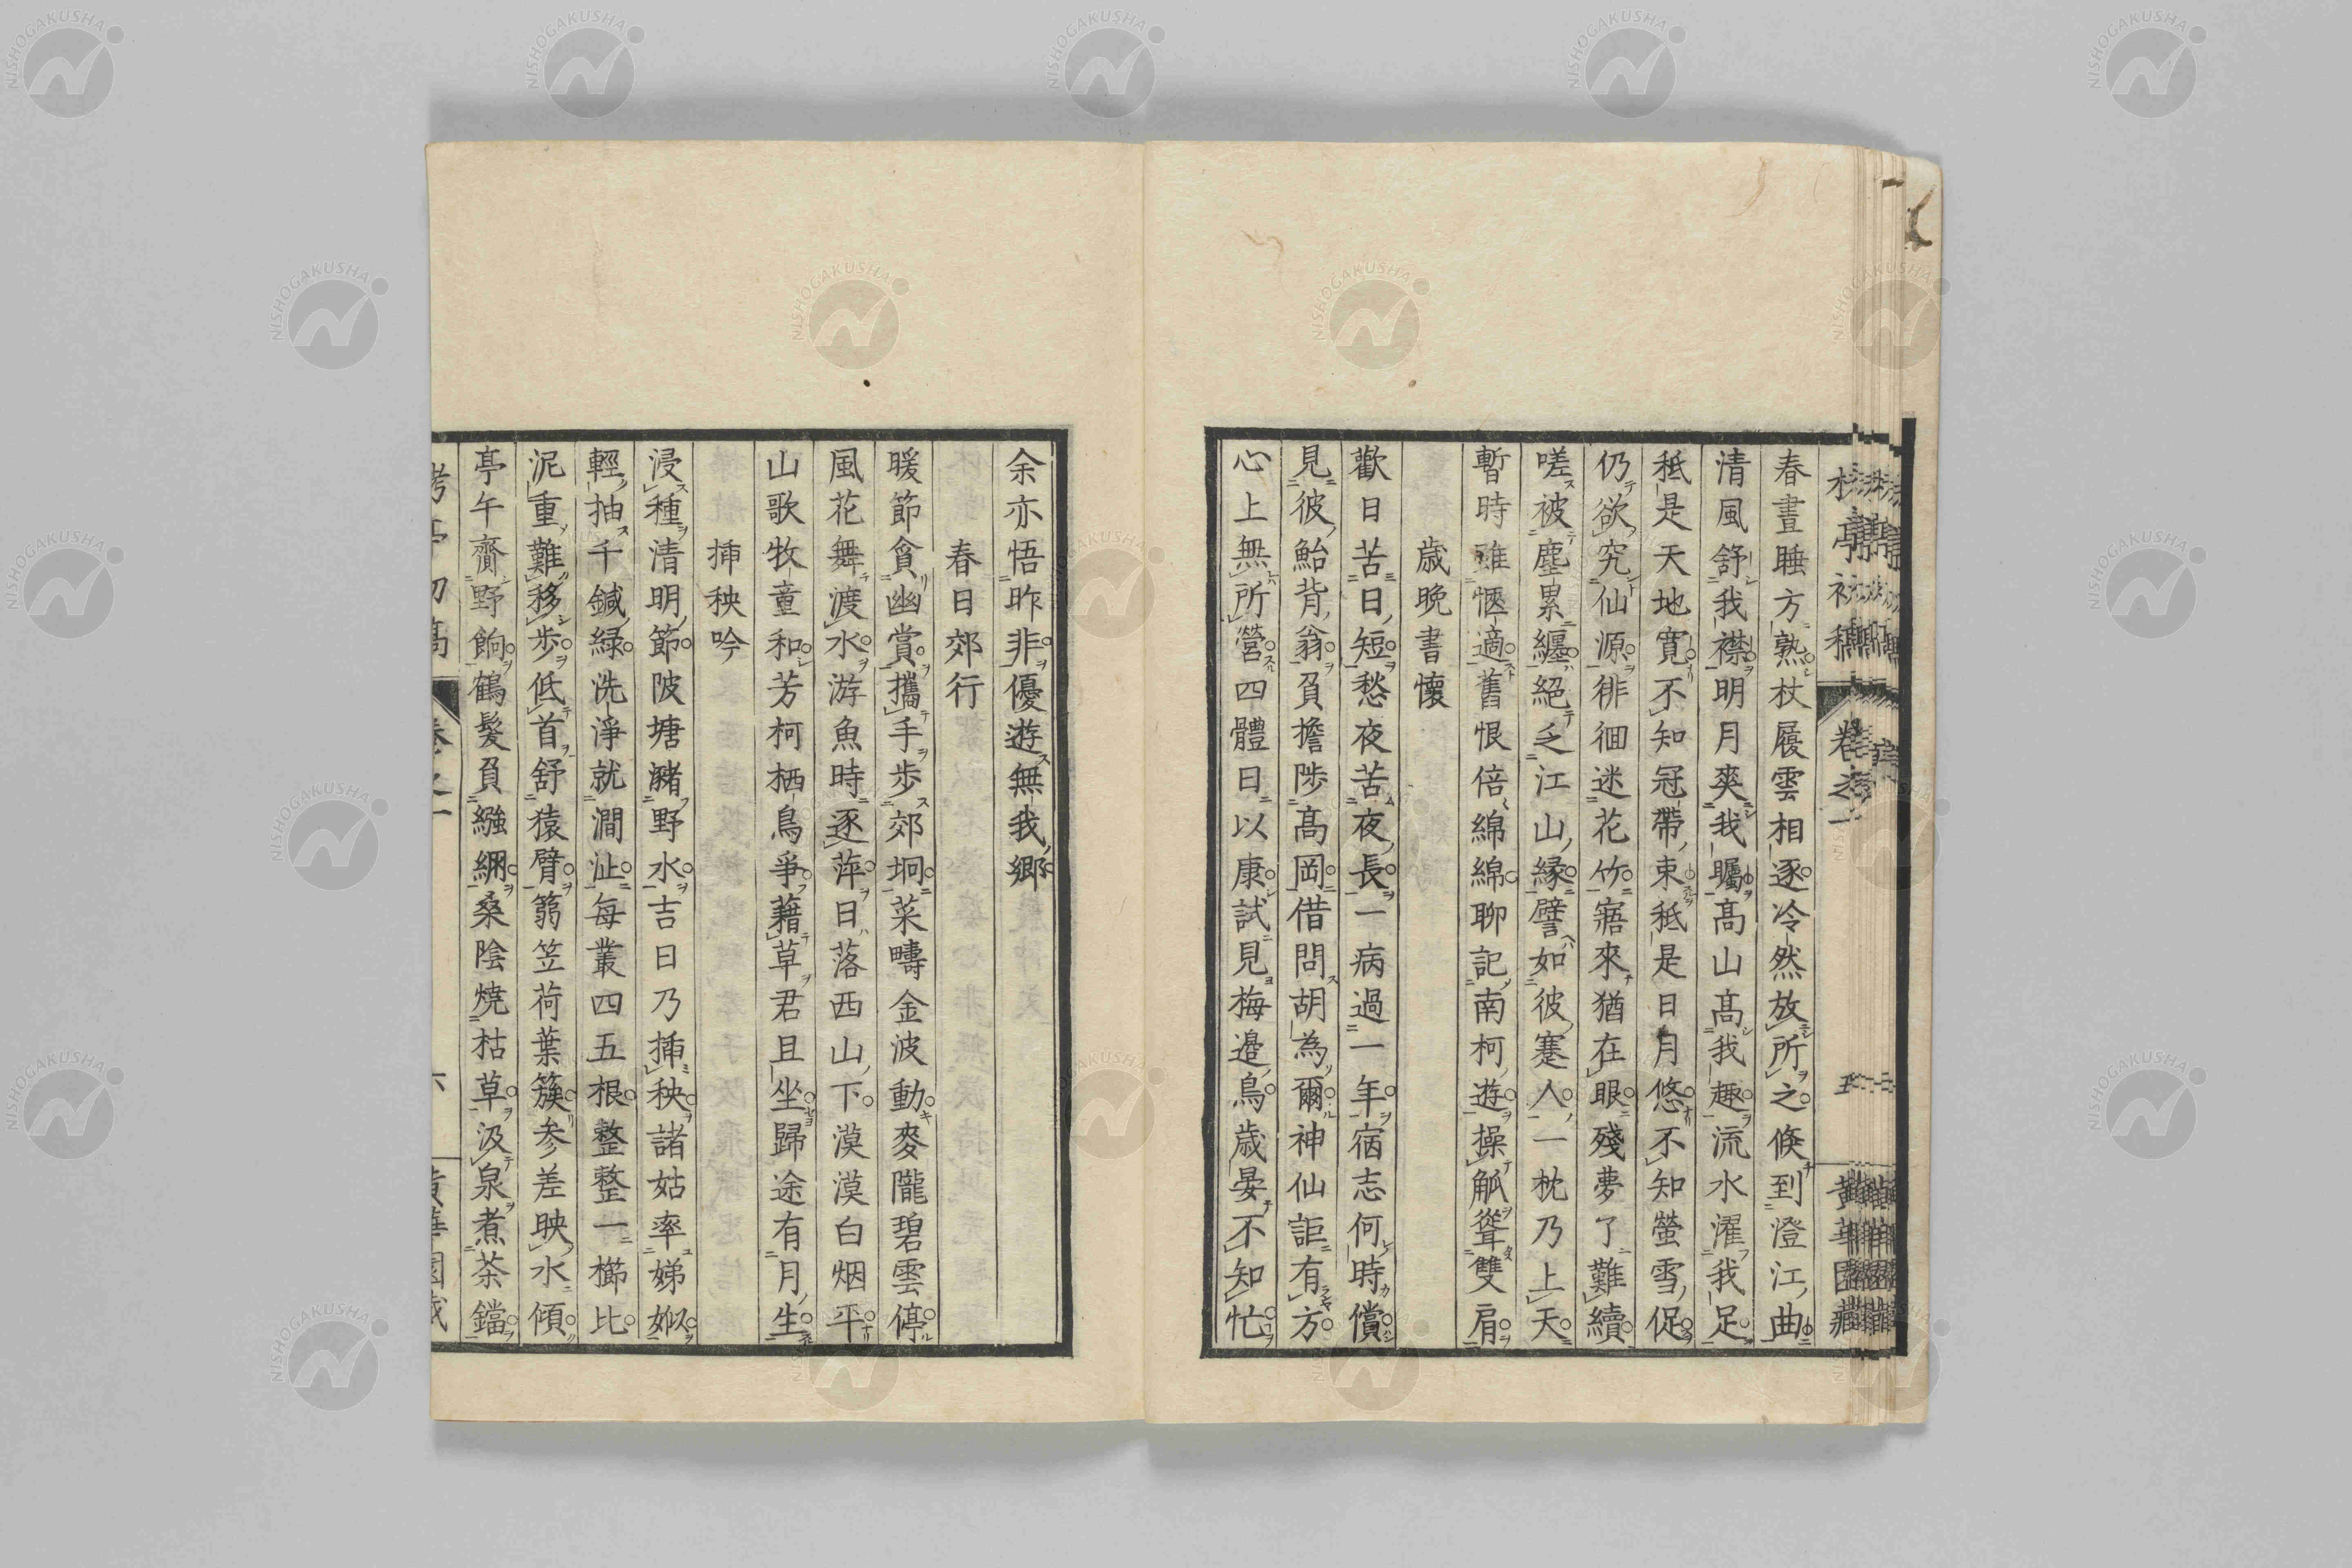 春晝睡方熟杖履雲相逐冷然放所之倏到澄江曲
清風舒我襟明月爽我矚髙山髙我趣流水濯我足
秪是天地寛不知冠帶束秪是日月悠不知螢雪促
仍欲究仙源徘徊迷花竹寤來猶在眼殘夢了難續
嗟被塵累纏絕乏江山縁譬如彼蹇人一枕乃上天
暫時雖愜適舊恨倍綿綿聊記南柯遊操觚聳雙肩
歲晩書懷
歡日苦日短愁夜苦夜長一病過一年宿志何時償
見彼鮐背翁負擔陟髙岡借問胡為爾神仙詎有方
心上無所營四體日以康試見梅邉鳥歲晏不知忙
余亦悟昨非優遊無我郷
春日郊行
暖節貪幽賞攜手步郊坰菜疇金波動麥隴碧雲停
風花舞渡水游魚時逐萍日落西山下漠漠白烟平
山歌牧童和芳柯栖鳥爭藉草君且坐歸途有月生
挿秧吟
浸種清明節陂塘瀦野水吉日乃挿秧諸姑率娣姒
輕抽千鍼緑洗淨就澗沚每叢四五根整整一櫛比
泥重難移步低首舒猿臂篛笠荷葉簇参差映水傾
亭午齎野餉鶴髮負繈繃桑陰焼枯草汲泉煮茶鐺
卷之一
五
黄華園藏